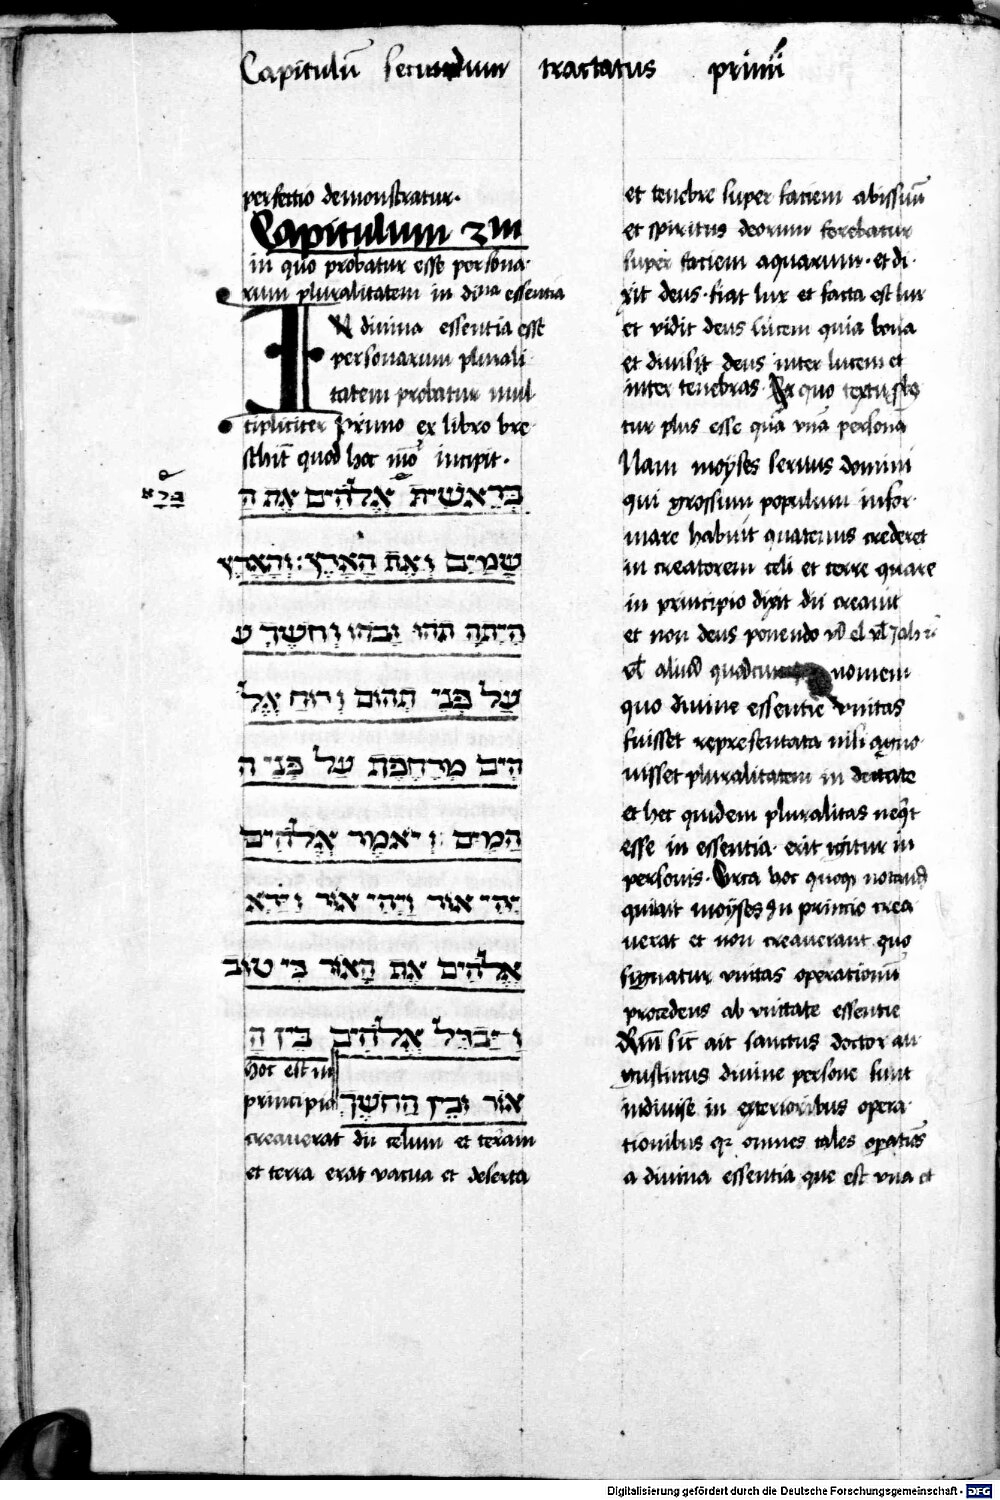 Capitulū secundum tractatus primi
perfectio demonstratur.
Capitulum 2m
in quo probatur esse persona-
rum pluralitatem in diuna essentia
IN diuina essentia esse
personarum plurali
tatem probatur mul
tipliciter Primo ex libro bre
schit quod hoc mō incipit.
בְרֵאשִית אֱלֹהִים אֵת הַ
ברא
שָמַיִם וְאֵת הָאָרֶץ: וְהָאָרֶץ
הָיְתָה תֹהוּ וָבֹהוּ וְחֹשֶךְ ע
עַל פְנֵי תְהוֹם וְרוּחַ אֱלֹ
הִים מְרַחֶפֶת עַל פְנֵי הַ
הַמָיִם וַיֹאמֶר אֱלֹהִים
יְהִי אוֹר וַיְהִי אוֹר וַיַרְא
אֱלֹהִים אֶת הָאוֹר כִי טוֹב
וַיַבְדֵל אֱלֹהִים בֵין הָ
hoc est in
principio אוֹר וּבֵין הַחֹשֶךְ
creauerat dii celum et terram
et terra erat vacua et deserta
et tenebre super faciem abissum
et spiritus deorum ferebatur
super faciem aquarum. et di-
xit deus. fiat lux et facta est lux
et vidit deus lucem quia bona
et diuisit deus inter lucem et
inter tenebras. Ex quo textu
tur plus esse quā vnā personā
Nam moyses seruus domini
qui grossum populum infor-
mare habuit quatenus crederet
in creatorem celi et terre quare
in principio dixit dii creauit
et non deus ponendo vl el vl
vl aliud nomem
quo diuine essentie vnitas
fuisset representata nisi agno-
uisset pluralitatem in deitate
et hec quidem pluralitas neqt
esse in essentia. erit igitur in
personis. Circa hoc quoqȝ notand
ait moyses In princio crea
uerat et non creauerant quo
signatur vnitas operationū
procedens ab vnitate essentie
sic ait sanctus doctor au-
gustinus diuine persone sunt
indiuise in exterioribus opera-
tionibus qȝ omnes tales
a diuina essentia que est vna et
Digitalisierung gefördert durch die Deutsche Forschungsgemeinschaft - DFG